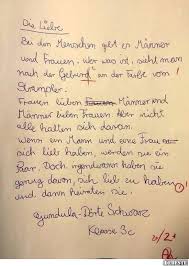 Die Liebe
Bei den Menschen gibt es Männer
und Frauen. Wer was ist, sieht man
nach der Geburt an der Farbe vom
Strampler.
Frauen lieben Männer und
Männer lieben Frauen. Aber nicht
alle halten sich daran.
Wenn ein Mann und eine Frau
sich lieb haben, werden sie ein
Paar. Doch irgendwann haben sie
genug davon, sich lieb zu haben
und dann heiraten sie.
Gundula-Dörte Schwarz
Klasse 3c